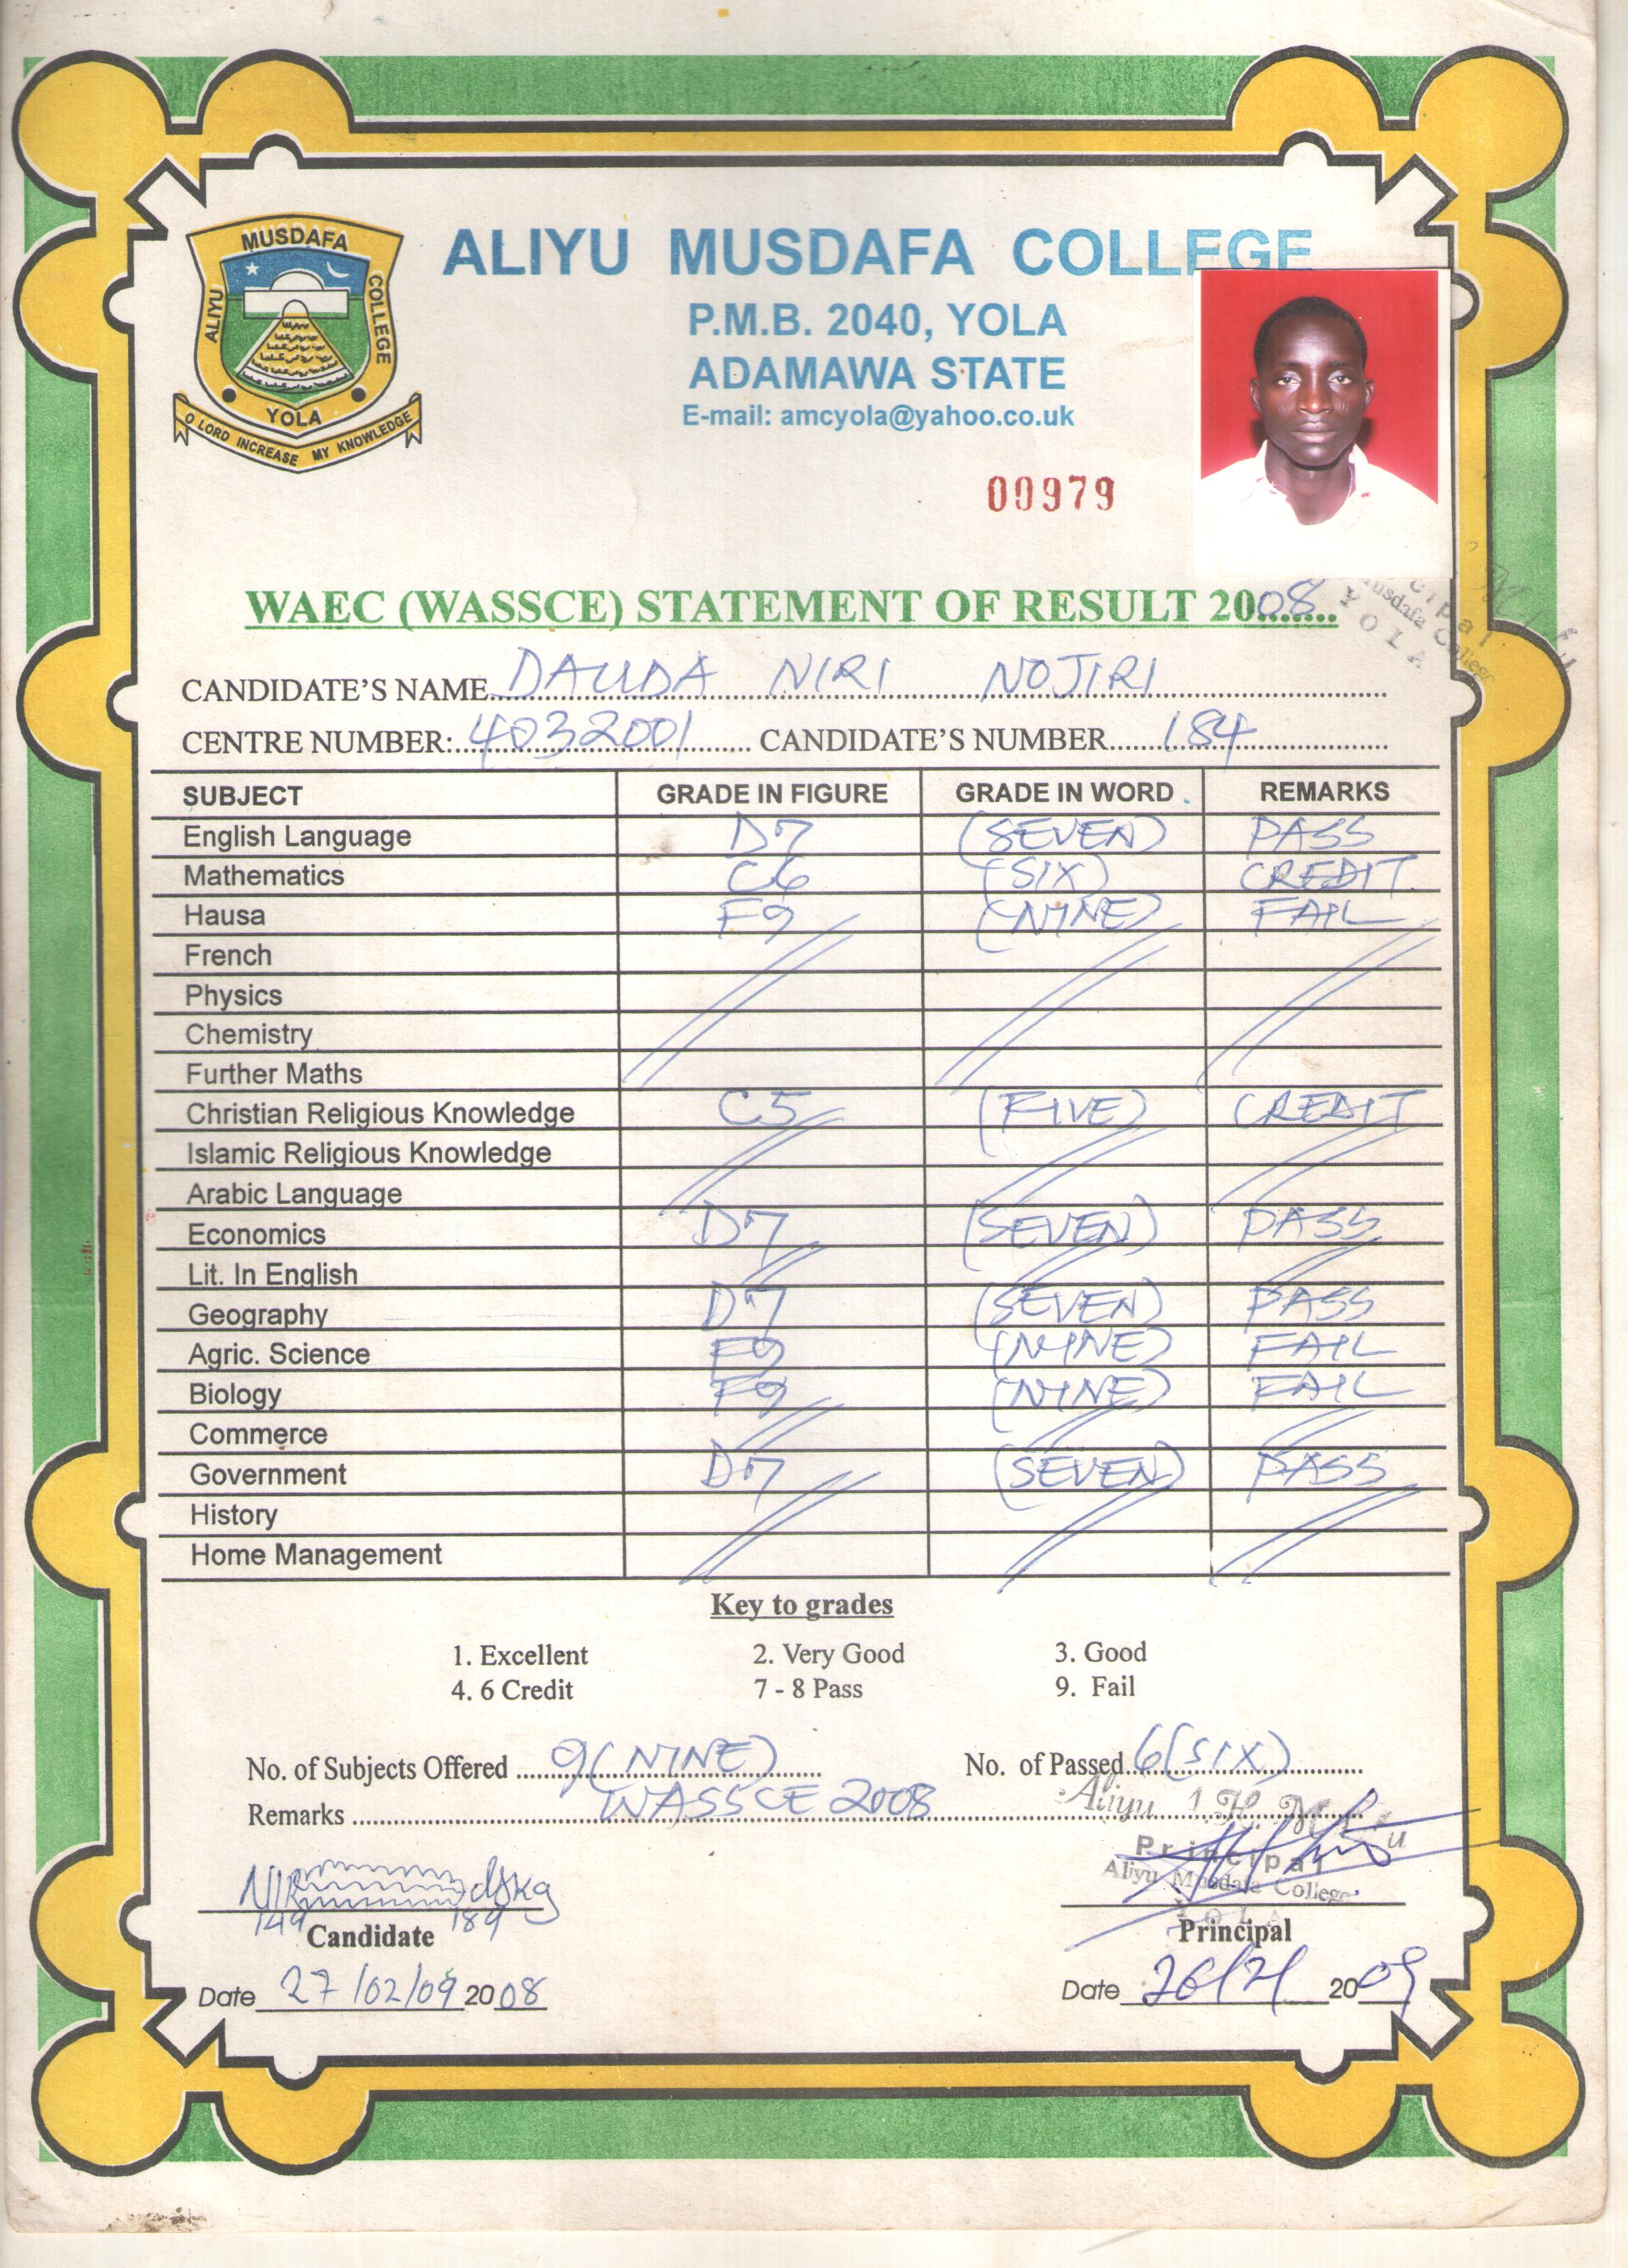 MUSDAFA
ALIYU
COLLEGE
YOLA
O LORD INCREASE MY KNOWLEDGE
ALIYU MUSDAFA COLLEGE
P.M.B. 2040, YOLA
ADAMAWA STATE
E-mail: amcyola@yahoo.co.uk
00979
WAEC (WASSCE) STATEMENT OF RESULT 2008
CANDIDATE'S NAME DAUDA NIRI NOJIRI
CENTRE NUMBER: 4032001 CANDIDATE'S NUMBER 184
SUBJECT GRADE IN FIGURE GRADE IN WORD REMARKS
English Language D7 (SEVEN) PASS
Mathematics C6 (SIX) CREDIT
Hausa F9 (NINE) FAIL
French
Physics
Chemistry
Further Maths
Christian Religious Knowledge C5 (FIVE) CREDIT
Islamic Religious Knowledge
Arabic Language
Economics D7 (SEVEN) PASS
Lit. In English
Geography D7 (SEVEN) PASS
Agric. Science F9 (NINE) FAIL
Biology F9 (NINE) FAIL
Commerce
Government D7 (SEVEN) PASS
History
Home Management
Key to grades
1. Excellent 2. Very Good 3. Good
4. 6 Credit 7 - 8 Pass 9. Fail
No. of Subjects Offered 9 (NINE) No. of Passed 6 (SIX)
Remarks WASSCE 2008
Aliyu
Principal
Aliyu Musdafa College
YOLA
Candidate Principal
Date 27/02/09 2008 Date 26/2/ 2009